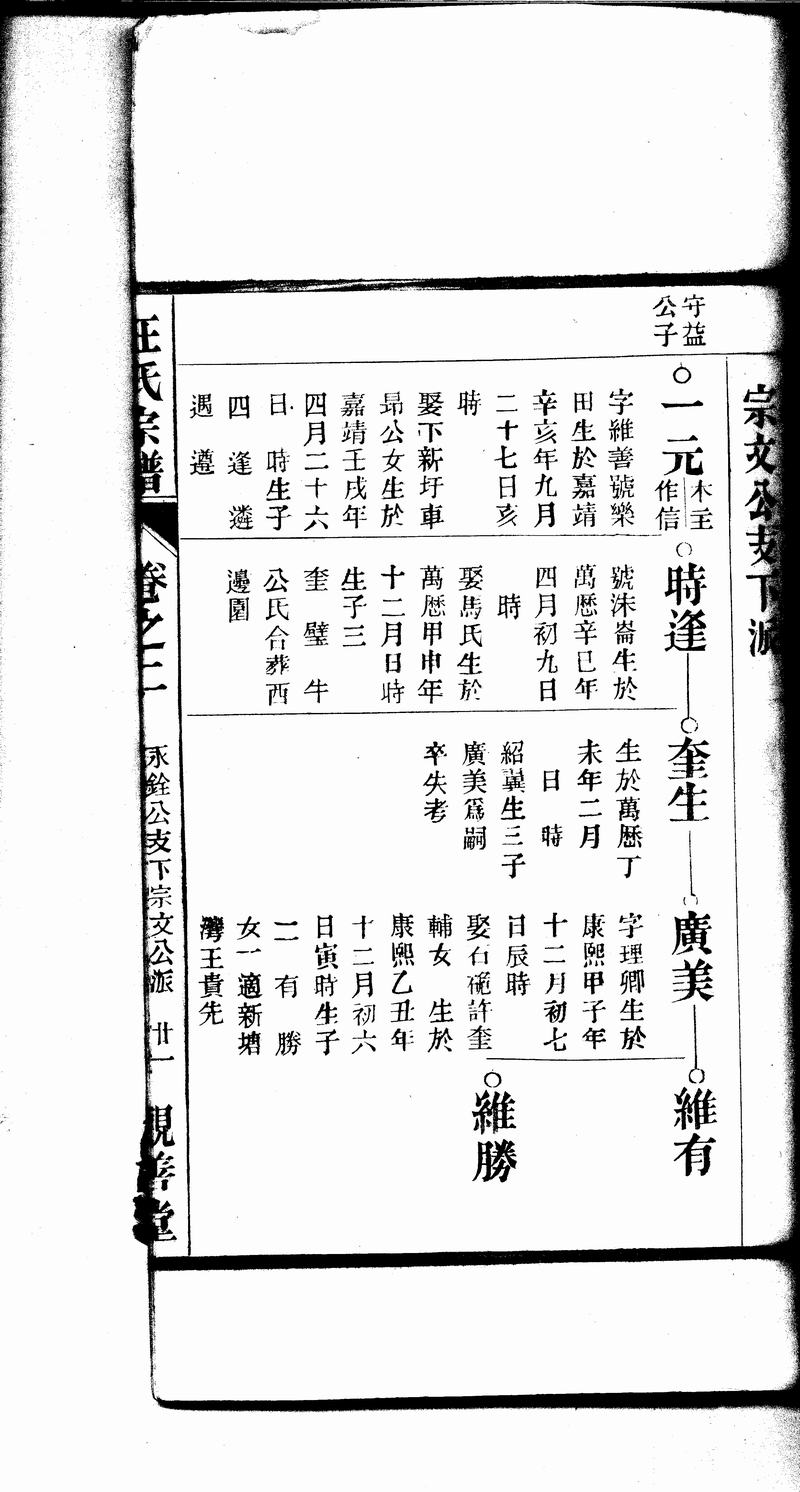 宗文公支下派
守益
公子
一元
木主
作信
字維善號樂
田生於嘉靖
辛亥年九月
二十七日亥
時
娶下新圩車
昂公女生於
嘉靖壬戌年
四月二十六
日 時生子
四 逢 遴
遇 遵
時逢
號洙崙生於
萬厯辛巳年
四月初九日
時
娶馬氏生於
萬厯甲申年
十二月日時
生子三
奎 璧 牛
公氏合葬西
邊園
奎生
生於萬厯丁
未年二月
日 時
紹翼生三子
廣美爲嗣
卒失考
廣美
字理卿生於
康熙甲子年
十二月初七
日辰時
娶石硊許奎
輔女 生於
康熙乙丑年
十二月初六
日寅時生子
二 有 勝
女一適新塘
灣王貴先
維有
維勝
汪氏宗譜
卷之二
永銓公支下宗文公派 廿一
親善堂